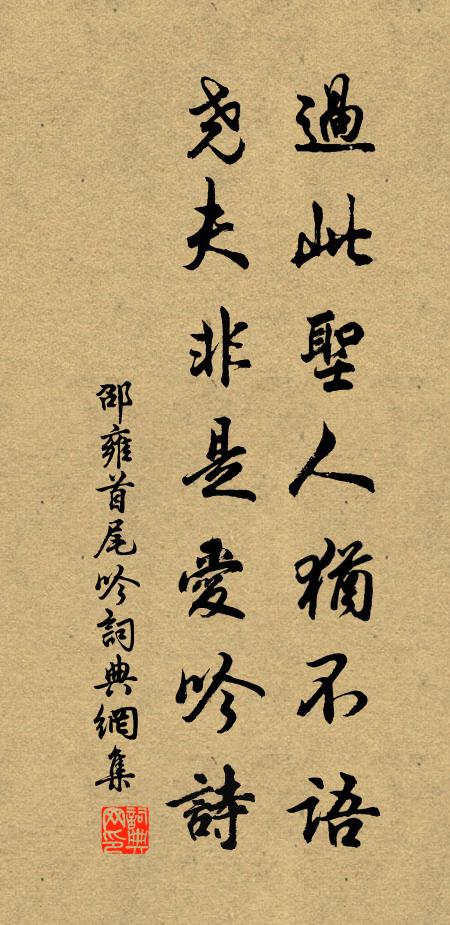 過此聖人猶不語
堯夫非是愛吟詩
邵雍首尾吟詞典網集
詞典網印